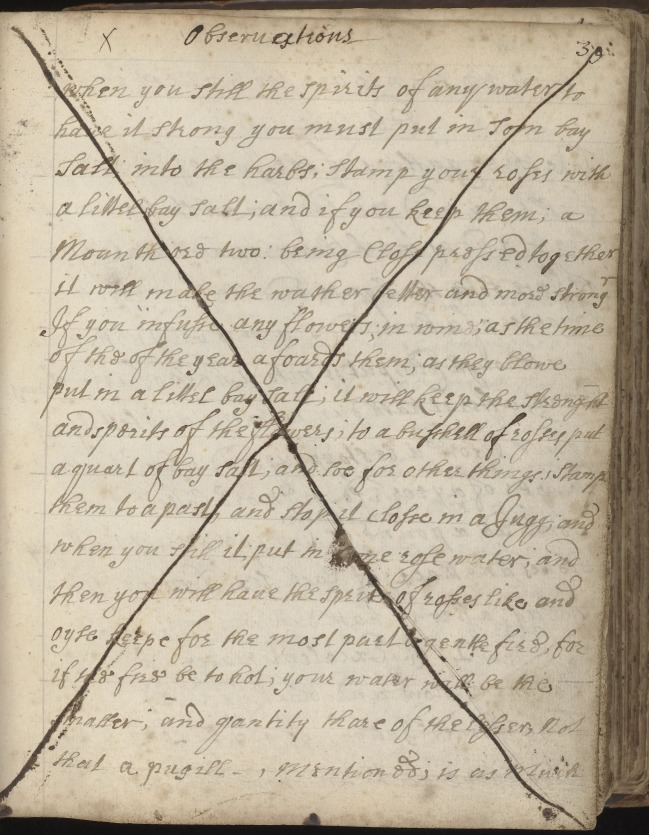 X Observations
39
when you still the spirits of any water to
have it strong you must put in som bay
Salt into the harbs; stamp your roses with
a littel bay salt; and if you keep them; a
Mounth ore two: being Close pressed together
it will make the wather better and more strong
If you infuse any flowers; in wine; as the time
of the of the year afoards them; as they blowe
put in a littel bay salt; it will keep the strenght
and spirits of the flowers; to a bushell of roses put
a quart of bay salt; and soe for other things: stamp
them to a past, and stop it close in a Jugg; and
when you still it put in some rose water; and
then you will have the spirit of rosses like and
oyle keepe for the most part a gentle fire, for
if the fire be to hot; your water will be the
smaller; and qantity thare of the lesser, Not
that a pugill - , Mentioned; is as Much